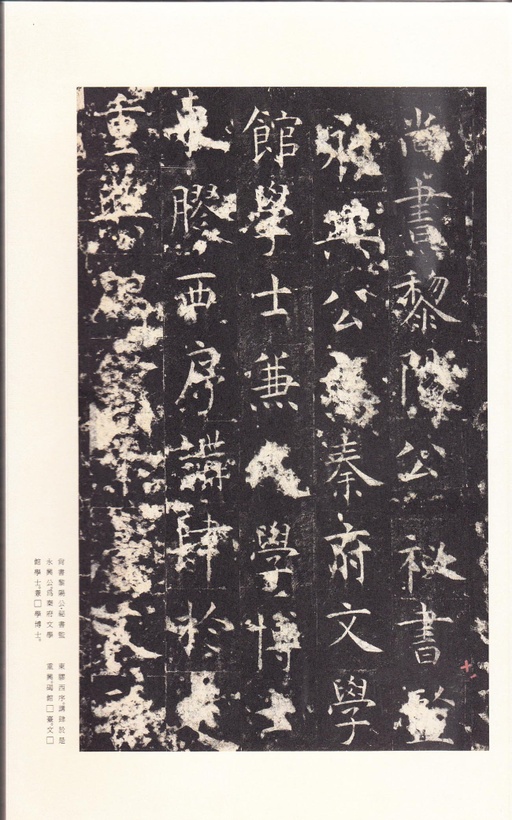 尚書黎陽公祕書監
永興公為秦府文學
館學士兼學博士
東膠西序講肆於是
重興碣館臺文
尚書黎陽公、祕書監
永興公、爲秦府文學
館學士、兼□學博士。
東膠西序、講肆於是
重興。碣館□臺、文□